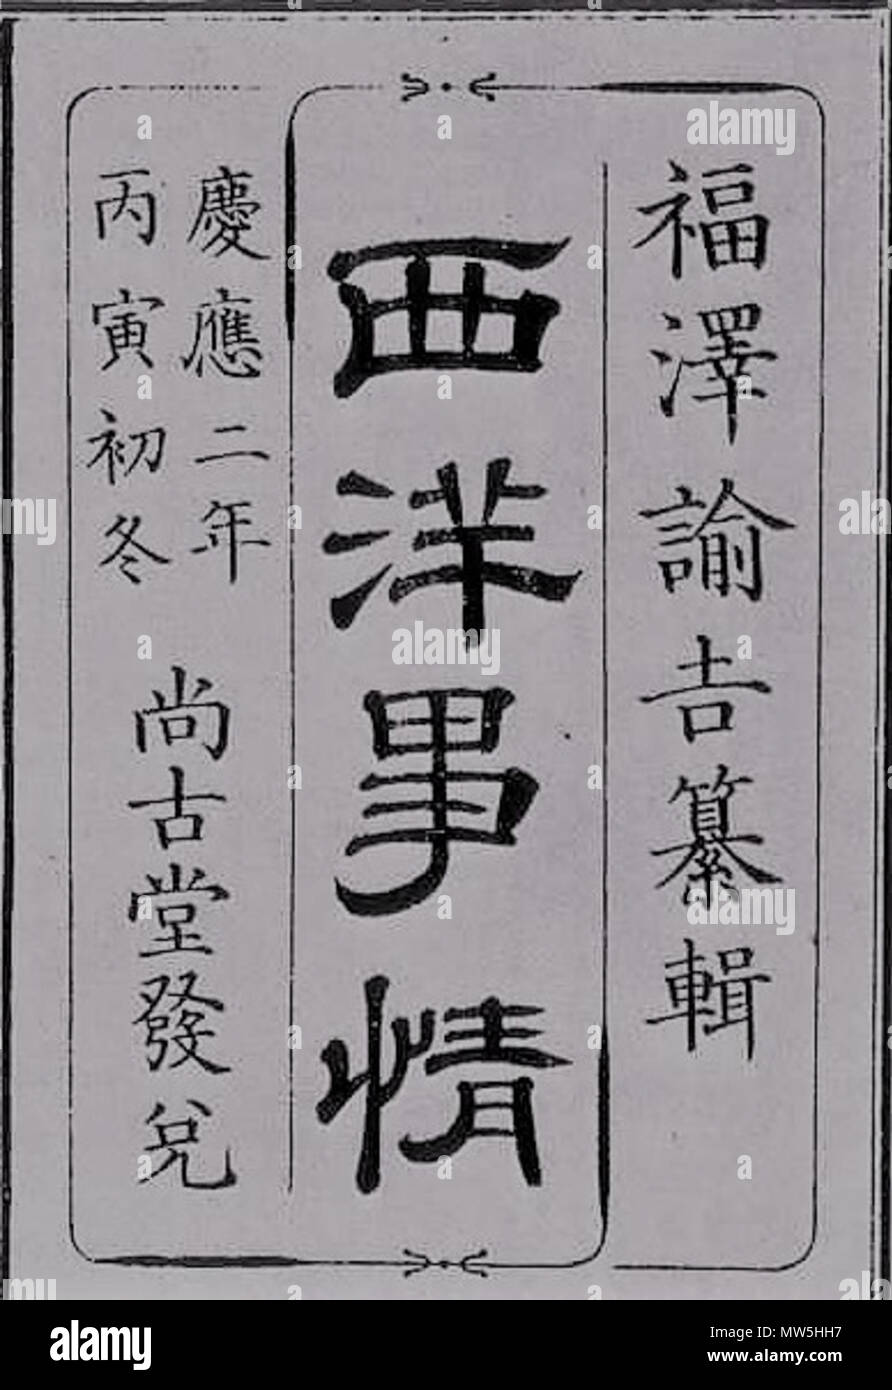 福澤諭吉纂輯
西洋事情
慶應二年
丙寅初冬
尚古堂發兌
alamy
Image ID: MW5HH7
www.alamy.com